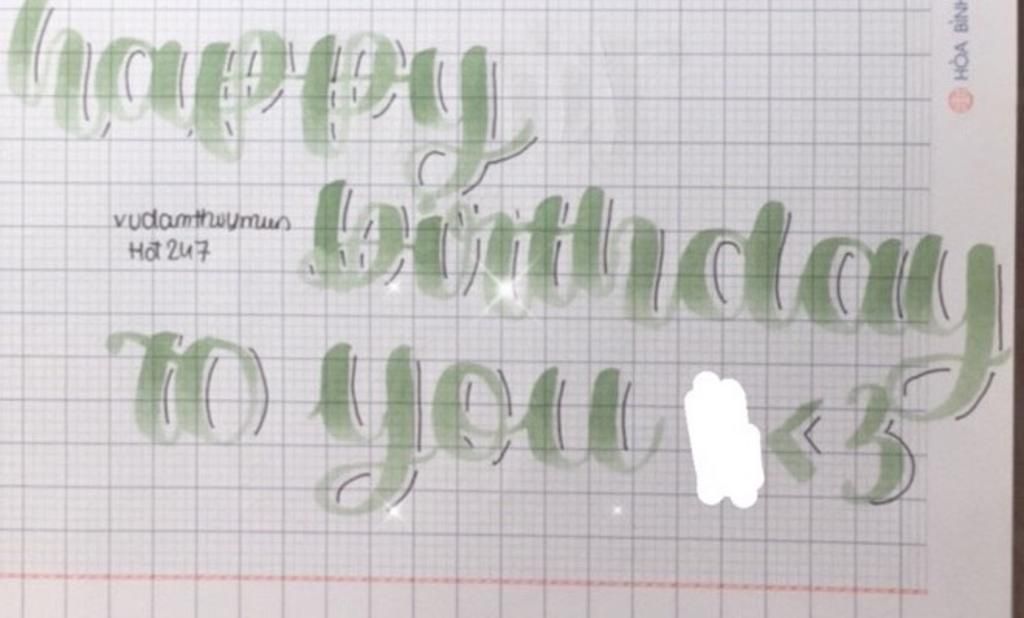 happy
birthday
vudamthuymun
Hđt 247
to you <3
HÒA BÌNH